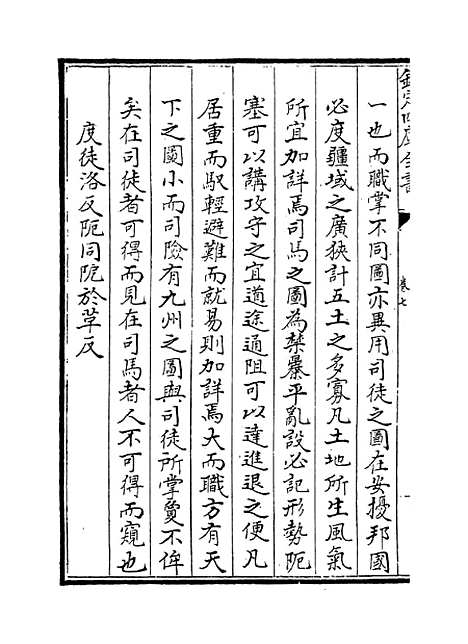 欽定四庫全書
卷七
一也而職掌不同圖亦異用司徒之圖在安擾邦國
必度疆域之廣狹計五土之多寡凡土地所生風氣
所宜加詳焉司馬之圖為禁暴平亂設必記形勢阨
塞可以講攻守之宜道途通阻可以達進退之便凡
居重而馭輕避難而就易則加詳焉大而職方有天
下之圖小而司險有九州之圖與司徒所掌夐不侔
矣在司徒者可得而見在司馬者人不可得而窺也
度徒洛反阨同阸於革反